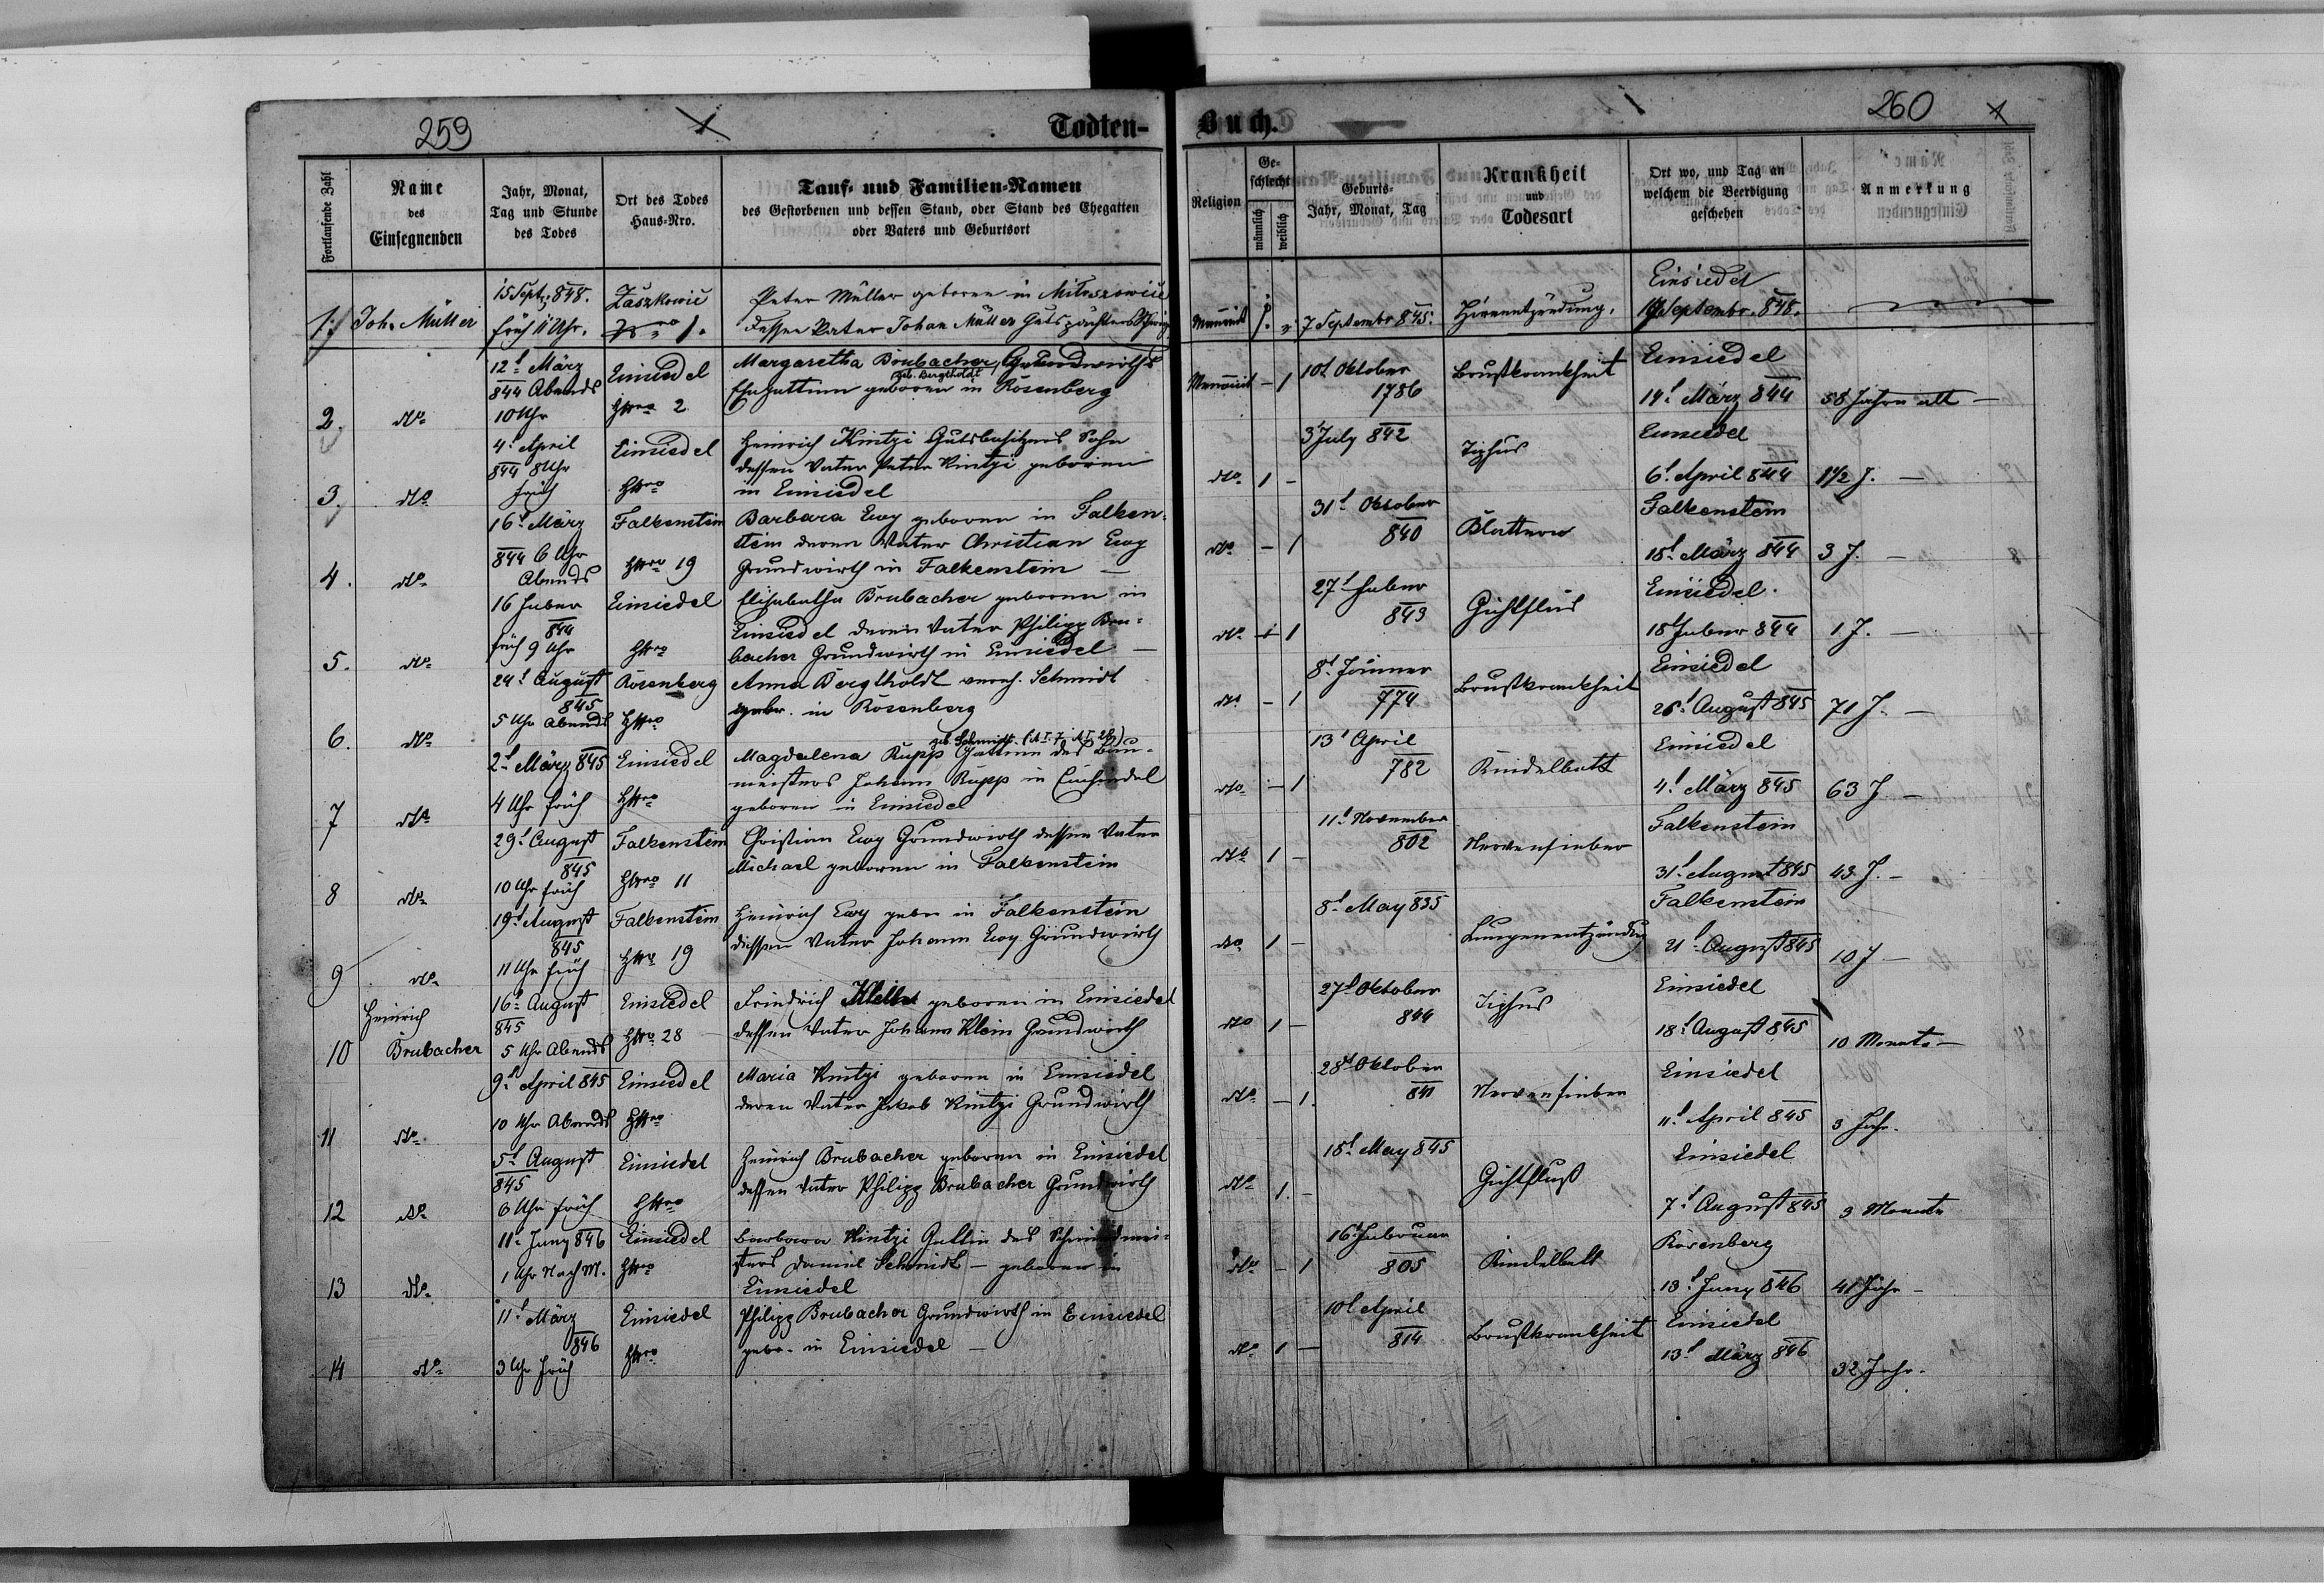 259
Todten-
Buch.
260
Fortlaufende Zahl
Name
des
Einsegnenden
Jahr, Monat,
Tag und Stunde
des Todes
Ort des Todes
Haus-Nro.
Tauf- und Familien-Namen
des Gestorbenen und dessen Stand, oder Stand des Ehegatten
oder Vaters und Geburtsort
Religion
Ge-
schlecht
männlich
weiblich
Geburts-
Jahr, Monat, Tag
Krankheit
und
Todesart
Ort wo, und Tag an
welchem die Beerdigung
geschehen
Anmerkung
1. Joh. Müller
15 Sept. 848.
früh 11 Uhr.
Zaszkowic
Nro 1.
Peter Müller geboren in Miloszowice
dessen Vater Johan Müller Gutspächters
Mennonit 1. 7 Septembr 845. Hirnentzündung.
Einsiedel
Septembr. 848.
2. do
12t März
844 Abends
10 Uhr
Einsiedel
HNro 2
Margaretha Brubacher, Grundwirths
geb. Bergtholdt
Ehegattinn geboren in Rosenberg
Mennonit - 1
10t Oktober
1786
Brustkrankheit
Einsiedel
14t März 844
58 Jahre alt -
3. do
4t April
844 8 Uhr
früh
Einsiedel
HNro
Heinrich Kintzi Gutsbesitzers Sohn
dessen Vater Peter Kintzi geboren
in Einsiedel
do 1 -
3 July 842
Tiphus
Einsiedel
6t April 844
1 1/2 J. -
4. do
16t März
844 6 Uhr
Abends
Falkenstein
HNro 19
Barbara Ewy geboren in Falken-
stein deren Vater Christian Ewy
Grundwirth in Falkenstein -
do - 1
31t Oktober
840
Blattern
Falkenstein
18t März 844
3 J. -
5. do
16 Feber
844
früh 9 Uhr
Einsiedel
HNro
Elisabetha Brubacher geboren in
Einsiedel deren Vater Philipp Bru-
bacher Grundwirth in Einsiedel -
do 1
27t Feber
843
Gichtfluß
Einsiedel.
18t Feber 844
1 J. -
6. do
24t August
845
5 Uhr Abends
Rosenberg
HNro
Anna Bergtholdt verh. Schmidt
gebor. in Rosenberg
do - 1
8t Jänner
774
Brustkrankheit
Einsiedel
26t August 845
71 J. -
7 do
2t März 845
4 Uhr früh
Einsiedel
HNro
geb. Schmidt
Magdalena Rupp Gattinn des Bau-
meisters Johann Rupp in Einsiedel
geboren in Einsiedel
do - 1
13t April
782
Kindelbett
Einsiedel
4t März 845
63 J. -
8 do
29t August
845
10 Uhr früh
Falkenstein
HNro 11
Christian Ewy Grundwirth dessen Vater
Michael geboren in Falkenstein
do 1 -
11t November
802
Nervenfieber
Falkenstein
31t August 845
43 J. -
9 do
19t August
845
11 Uhr früh
Falkenstein
HNro 19
Heinrich Ewy gebor in Falkenstein
dessen Vater Johann Ewy Grundwirth
do 1 -
8t May 835
Lungenentzündg
Falkenstein
21t August 845
10 J -
10 Heinrich
Brubacher
16t August
845
5 Uhr Abends
Einsiedel
HNro 28
Friedrich Klein geboren in Einsiedel
dessen Vater Johann Klein Grundwirth
do 1 -
27t Oktober
844
Tiphus
Einsiedel
18t August 845
10 Monate -
11 do
9t April 845
10 Uhr Abends
Einsiedel
HNro
Maria Kintzi geboren in Einsiedel
deren Vater Jakob Kintzi Grundwirth
do - 1.
28t Oktober
841
Nervenfieber
Einsiedel
11t April 845
3 Jahr.
12 do
5t August
845
6 Uhr früh
Einsiedel
HNro
Heinrich Brubacher geboren in Einsiedel
dessen Vater Philipp Brubacher Grundwirth
do 1. -
15t May 845
Gichtfluß
Einsiedel
7t August 845
3 Monate
13 do
11t Juny 846
1 Uhr Nach M.
Einsiedel
HNro
Barbara Kintzi Gattin des Schmidmei-
sters Daniel Schmidt - geboren in
Einsiedel
do - 1
16t Februar
805
Kindelbett
Rosenberg
13t Juny 846
41 Jahr -
14 do
11t März
846
3 Uhr früh
Einsiedel
HNro
Philipp Brubacher Grundwirth in Einsiedel
gebor. in Einsiedel -
do 1 -
10t April
814
Brustkrankheit
Einsiedel
13t März 846
32 Jahr.